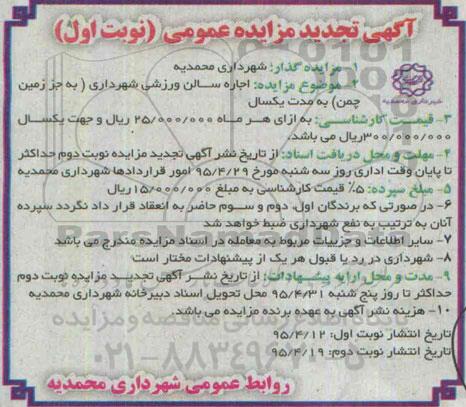 آگهی تجدید مزایده عمومی (نوبت اول)
۱- مزایده گذار: شهرداری محمدیه
۲- موضوع مزایده: اجاره سالن ورزشی شهرداری ( به جز زمین
چمن) به مدت یکسال
شهرداری محمدیه
۳- قیمت کارشناسی: به ازای هر ماه ۲۵/۰۰۰/۰۰۰ ریال و جهت یکسال
۳۰۰/۰۰۰/۰۰۰ریال می باشد.
۴- مهلت و محل دریافت اسناد: از تاریخ نشر آگهی تجدید مزایده نوبت دوم حداکثر
تا پایان وقت اداری روز سه شنبه مورخ ۹۵/۴/۲۹ امور قراردادها شهرداری محمدیه
۵- مبلغ سپرده: ۵٪ قیمت کارشناسی به مبلغ ۱۵/۰۰۰/۰۰۰ریال
۶- در صورتی که برندگان اول، دوم و سوم حاضر به انعقاد قرار داد نگردد سپرده
آنان به ترتیب به نفع شهرداری ضبط خواهد شد
۷- سایر اطلاعات و جزییات مربوط به معامله در اسناد مزایده مندرج می باشد
۸- شهرداری در رد یا قبول هر یک از پیشنهادات مختار است
۹- مدت و محل ارایه پیشنهادات: از تاریخ نشر آگهی تجدید مزایده نوبت دوم
حداکثر تا روز پنج شنبه ۹۵/۴/۳۱ محل تحویل اسناد دبیرخانه شهرداری محمدیه
۱۰- هزینه نشر آگهی به عهده برنده مزایده می باشد.
تاریخ انتشار نوبت اول: ۹۵/۴/۱۲
تاریخ انتشار نوبت دوم: ۹۵/۴/۱۹
۰۲۱-۸۸۳۴۹۶۷۰-۵
روابط عمومی شهرداری محمدیه